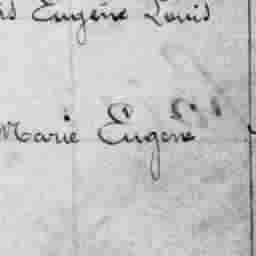 Eugène Louis
Marie Eugène